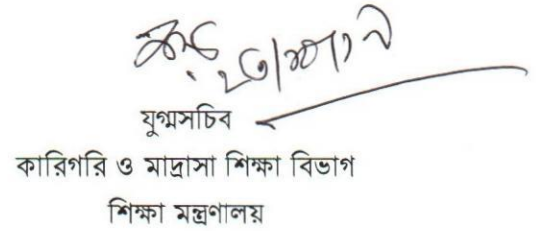 যুগ্মসচিব
কারিগরি ও মাদ্রাসা শিক্ষা বিভাগ
শিক্ষা মন্ত্রণালয়